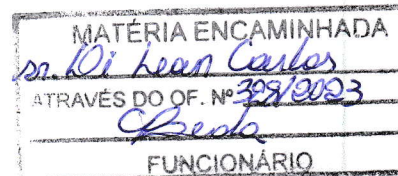 MATÉRIA ENCAMINHADA
Carlos
ATRAVÉS DO OF. Nº 398/2023
FUNCIONÁRIO